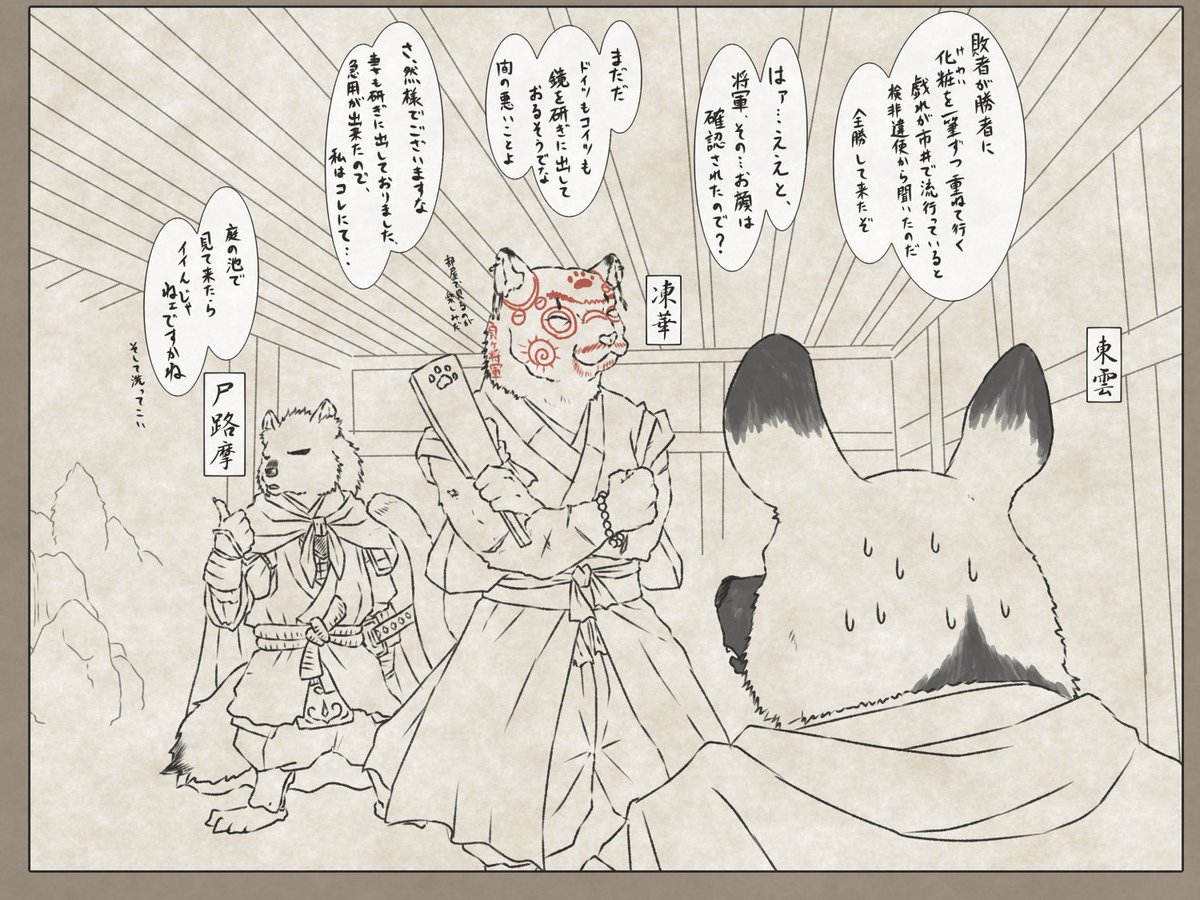 敗者が勝者に
化粧を一筆ずつ重ねて行く
けわい
戯れが市井で流行っていると
検非違使から聞いたのだ
全勝して来たぞ
東雲
はァ…ええと、
将軍、その…お顔は
確認されたので？
凍華
まだだ
ドイツもコイツも
鏡を研ぎに出して
おるそうでな
間の悪いことよ
部屋で見るのが
楽しみだ
負ケ将軍
さ、然様でございますな
妻も研ぎに出しておりました、
急用が出来たので、
私はコレにて…、
庭の池で
見て来たら
イイんじゃ
ねェですかね
そして洗ってこい
尸路摩